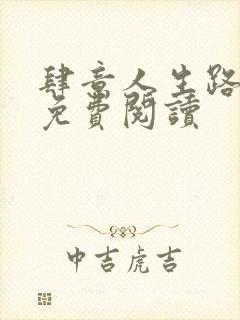 肆意人生路
免費閱讀
中吉虎吉